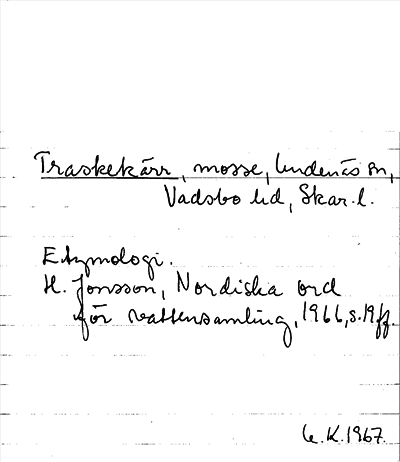 Traskekärr, mosse, Undenäs sn,
Vadsbo hd, Skar. l.
Etymologi.
H. Jonsson, Nordiska ord
för vattensamling, 1966, s. 19 ff.
K. 1967.